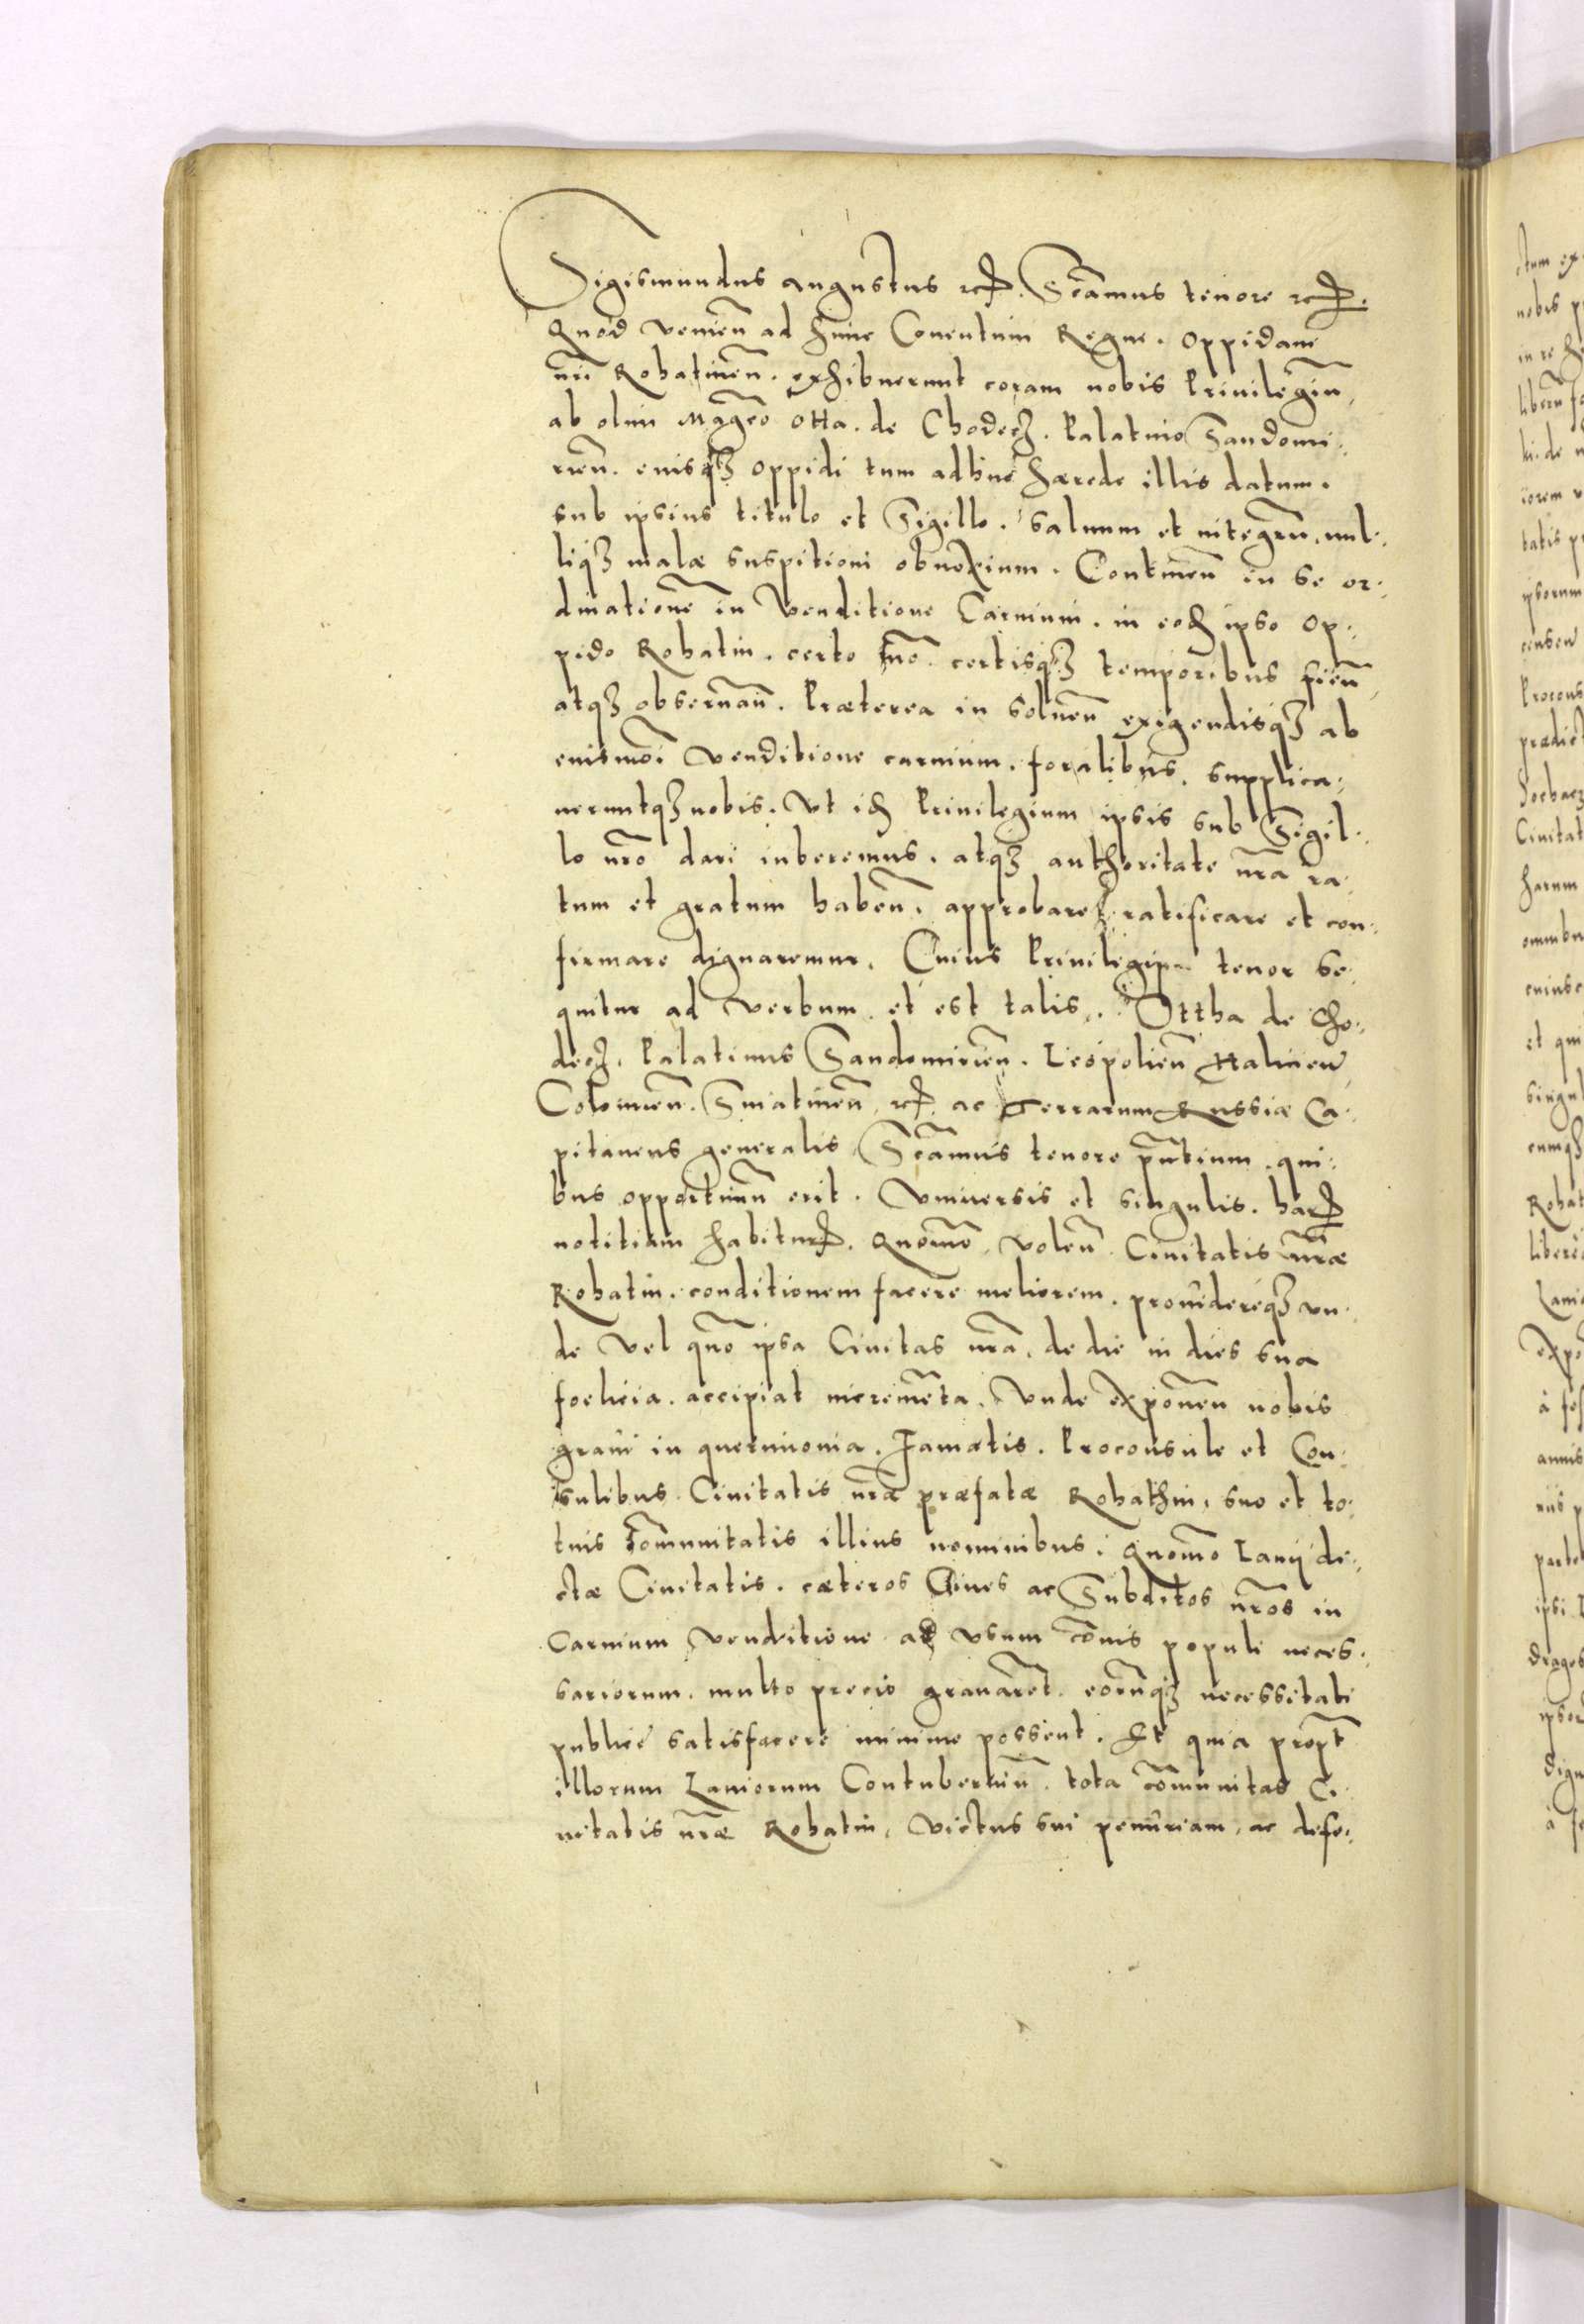 Sigismundus Augustus etc. Scãmus tenore etc.
Quod venieñ ad hunc Conentum Regni. Oppidani
nri̅i Rohatineñ. exhibuerunt coram nobis Priuilegiũ,
ab olim Mag̃co Otta. de Chodecz. Palatino Sandomi-
rieñ. euisqȝ oppidi tum adhuc hærede illis datum.
sub ipsius titulo et Sigillo. saluum et integrũ, nul-
liqȝ malæ suspitioni obnoxium. Contineñ in se or-
dinationẽ in Venditione Carnium. in eodẽ ipso Op-
pido Rohatin. certo mõ. certisqȝ temporibus fieñ
atqȝ obseruañ. Præterea in solueñ exigendisqȝ ab
euismõi venditione carnium. foralibus, supplica-
ueruntqȝ nobis. Vt id̃ Priuilegium ipsis sub Sigil-
lo nr̃o dari iuberemus. atqȝ authoritate nr̃a ra-
tum et gratum habeñ, approbare, ratificare et con-
firmare dignaremur. Cuius Priuilegii tenor se-
quitur ad verbum et est talis. Ottha de Cho-
decz, Palatinus Sandomirieñ. Leopolieñ Halicieñ
Colomieñ. Sniatineñ etc. ac Terrarum Russiæ Ca-
pitaneus generalis Scãmus tenore pñtium. qui-
bus opportunũ erit. Vniuersis et singulis. harum
notitiam habituris. Quomõ, voleñ Ciuitatis nr̃æ
Rohatin. conditionem facere meliorem. prouidereqȝ vn-
de vel quõ ipsa Ciuitas nr̃a, de die in dies sua
foelicia. accipiat incremẽta. Vnde exponeñ nobis
graui in querimonia. Famatis. Proconsule et Con-
sulibus Ciuitatis nr̃æ præfatæ Rohathin, suo et to-
tius cõmunitatis illius nominibus. Quomõ Lanij di-
ctæ Ciuitatis. cæteros Ciues ac Subditos nr̃os in
Carnium venditione ad vsum cõis populi neces-
sariorum. multo precio grauarẽt. eorũqȝ necessitati
publice satisfacere minime possent. Et quia propt̃
illorum Laniorum Contuberniũ. tota cõmunitas Ci-
uitatis nr̃æ Rohatin, victus sui penuriam, ac defe-